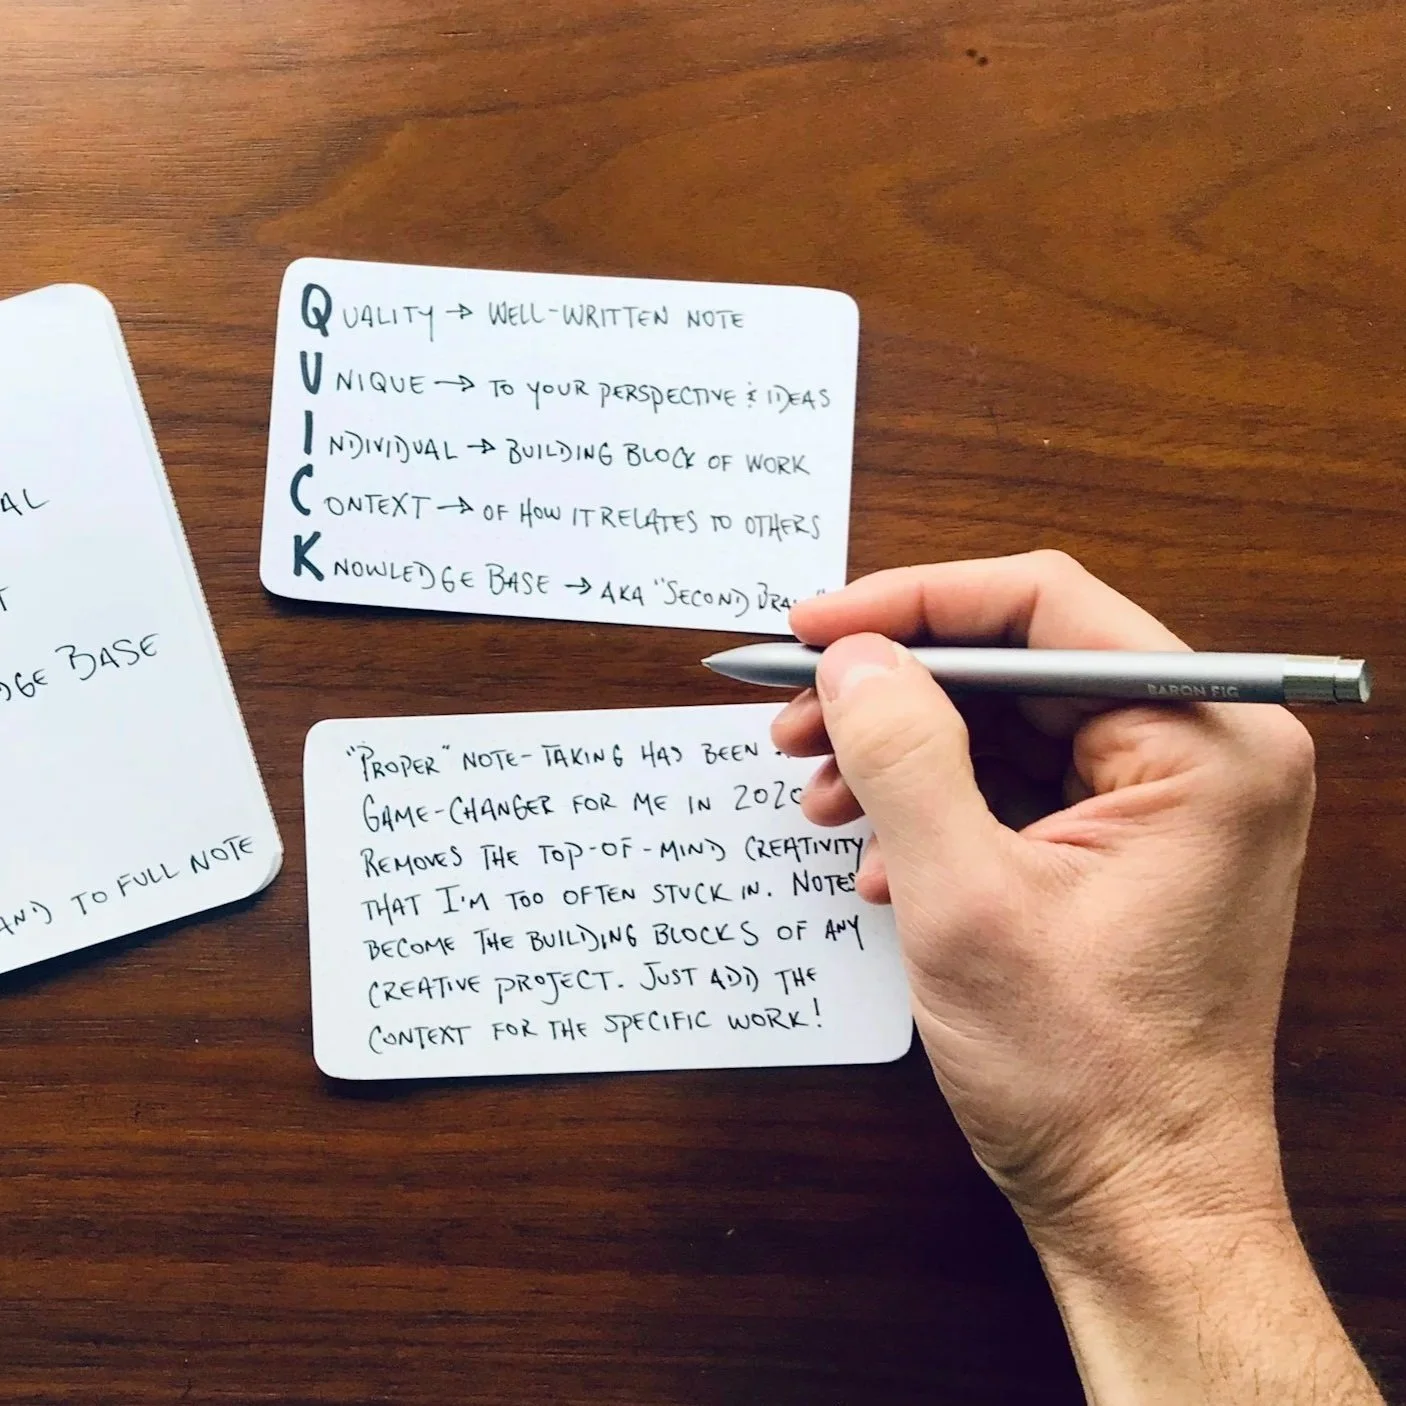 AL
T
DGE BASE
AND TO FULL NOTE
QUALITY → WELL-WRITTEN NOTE
UNIQUE → TO YOUR PERSPECTIVE & IDEAS
INDIVIDUAL → BUILDING BLOCK OF WORK
CONTEXT → OF HOW IT RELATES TO OTHERS
KNOWLEDGE BASE → AKA "SECOND BRA
BARON FIG
"PROPER" NOTE-TAKING HAS BEEN
GAME-CHANGER FOR ME IN 2020
REMOVES THE TOP-OF-MIND CREATIVITY
THAT I'M TOO OFTEN STUCK IN. NOTES
BECOME THE BUILDING BLOCKS OF ANY
CREATIVE PROJECT. JUST ADD THE
CONTEXT FOR THE SPECIFIC WORK!